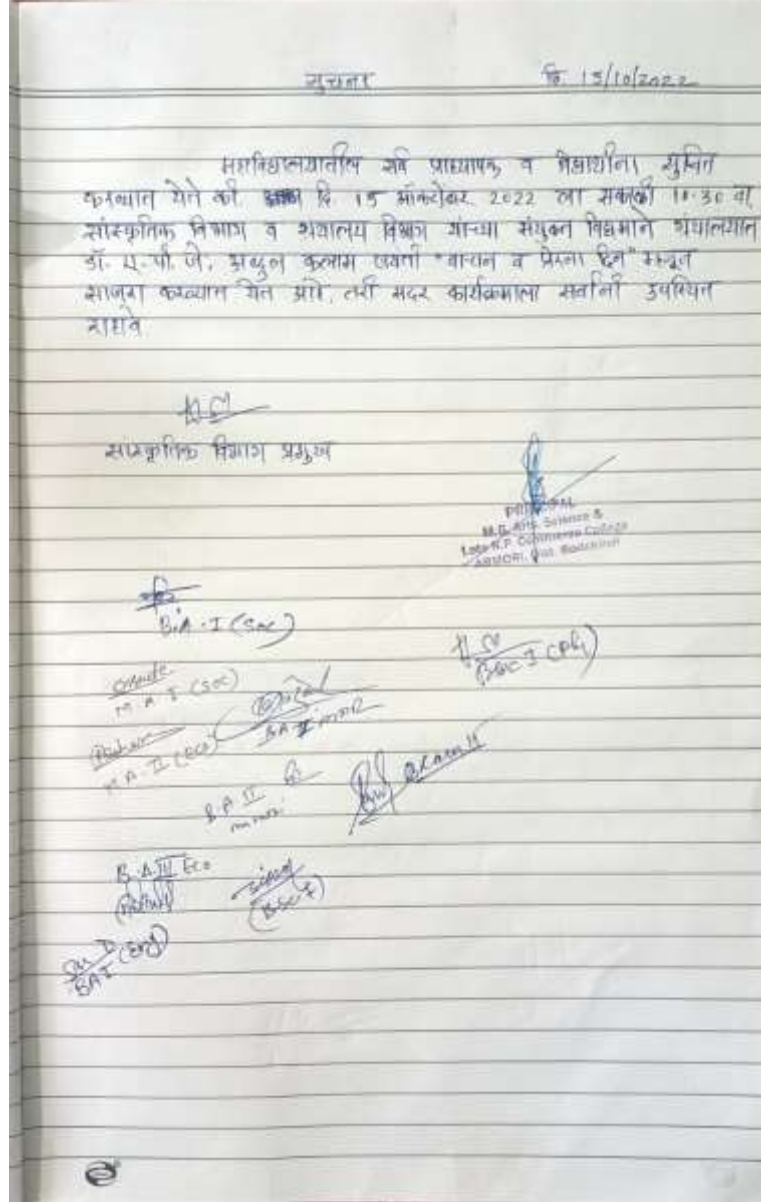 सुचना दि. 15/10/2022
महाविद्यालयातील सर्व प्राध्यापक व विद्यार्थींना सुचित
करण्यात येते की दि. 15 ऑक्टोबर 2022 ला सकाळी 10.30 वा.
सांस्कृतिक विभाग व ग्रंथालय विभाग यांच्या संयुक्त विद्यमाने ग्रंथालयात
डॉ. ए. पी. जे. अब्दुल कलाम जयंती "वाचन व प्रेरना दिन" म्हनून
साजरा करण्यात येत आहे. तरी सदर कार्यक्रमाला सर्वांनी उपस्थित
राहावे
सांस्कृतिक विभाग प्रमुख
PRINCIPAL
M.G. Arts, Science &
Late N.P. Commerce College
ARMORI, Dist. Gadchiroli
B.A.-I (Soc)
BSC I (Ph)
M.A I (Soc)
BA II mar
M.A-II (Eco)
B.A II
B.A III Eco
(B.Sc I)
BA I (Eng)